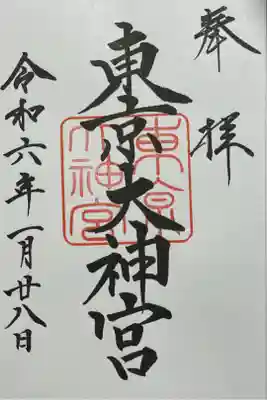 奉拝
東京大神宮
東京大神宮
令和六年一月廿八日